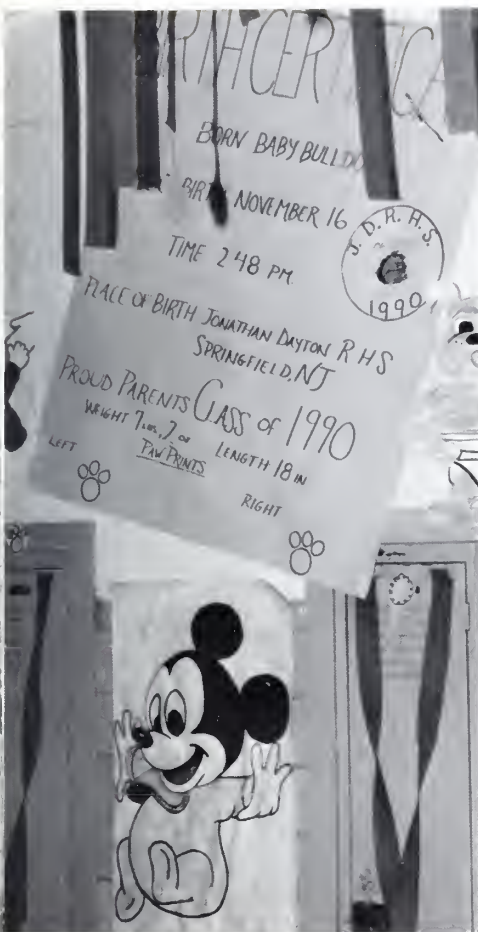 BIRTH CERTIFICA
BORN BABY BULLDO
BIRTH NOVEMBER 16
TIME 2 48 PM.
J. D. R. H. S.
1990
PLACE OF BIRTH JONATHAN DAYTON R H S
SPRINGFIELD, NJ
PROUD PARENTS CLASS OF 1990
WEIGHT 7 LBS, 7 OZ LENGTH 18 IN
PAW PRINTS
LEFT
RIGHT